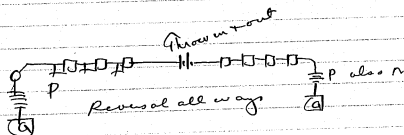 Throw in + out
P
P also n
Reversal all ways
G
G